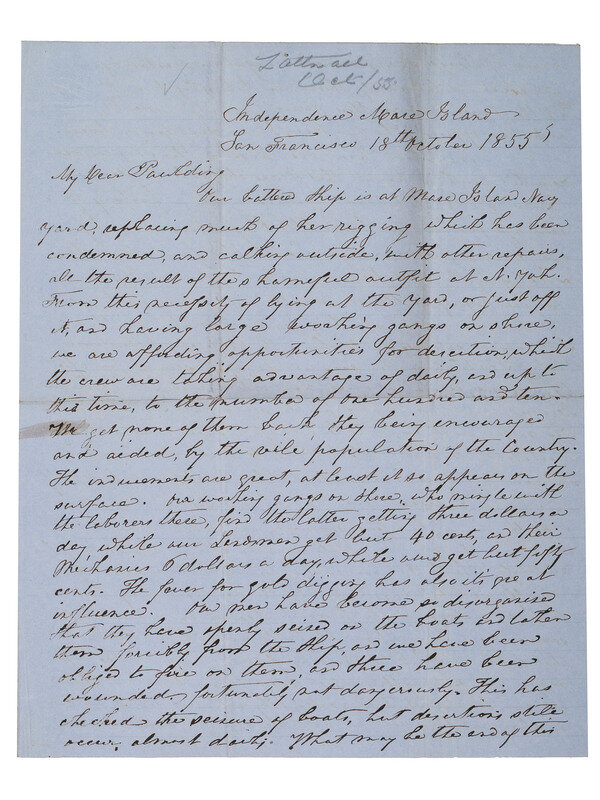 Tattnall
Oct/55.
Independence Mare Island
San Francisco 18th October 1855
My Dear Paulding
Our battered Ship is at Mare Island Navy
yard, replacing much of her rigging which has been
condemned, and calking outside, with other repairs,
all the result of the shameful outfit at N. York.
From this necessity of lying at the Yard, or just off
it, and having large working gangs on shore,
we are affording opportunities for desertion, which
the crew are taking advantage of daily, and up to
this time, to the number of one hundred and ten.
We get none of them back, they being encouraged
and aided, by the vile population of the Country.
The inducements are great, at least it so appears on the
surface. Our working gangs on shore, who mingle with
the laborers there, find the latter getting three dollars a
day, while our Landsmen get but 40 cents, and their
Mechanics 6 dollars a day, while ours get but fifty
cents. The fever for gold digging has also it's great
influence. Our men have become so disorganised
that they have openly seized on the boats and taken
them forcibly from the Ship, and we have been
obliged to fire on them, and three have been
wounded, fortunately not dangerously. This has
checked the seizure of boats, but desertions still
occur, almost daily. What may be the end of this